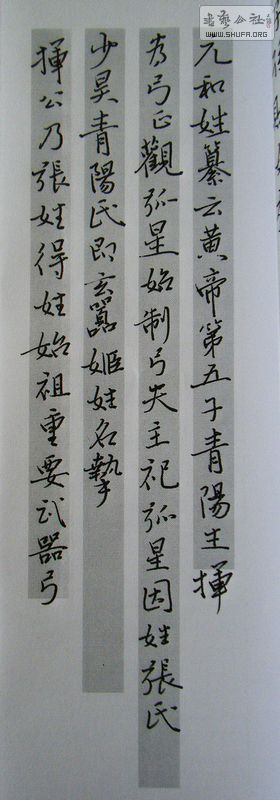 元和姓纂云黄帝第五子青陽生揮
為弓正觀弧星始制弓矢主祀弧星因姓張氏
少昊青陽氏即玄囂姬姓名摯
揮公乃張姓得姓始祖重要武器弓
书艺公社
WWW.SHUFA.ORG